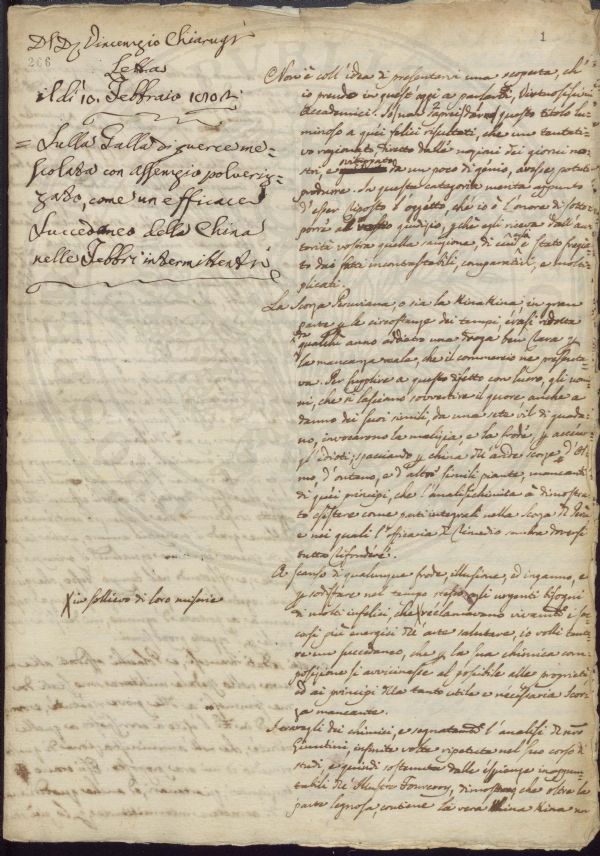 Vincenzio Chiarugi
266
Letta
il dì 10. Febbraio
= Sulla Galla di querce me-
scolata con assenzio polveriz-
zato, come un efficace
Succedaneo della China
nelle Febbri intermittenti
1
Non è coll'idea di presentarvi una scoperta, ch'
io prendo in quest'oggi a parlarvi, Virtuosissimi
Accademici. questo titolo lu-
minoso a quei felici risultati, che uno tentati-
vo ragionato diretto dalle nozioni dei giorni no-
stri, e da un poco di genio, avesse potuto
produrre. In questa categoria merita appunto
d'esser riposto l'oggetto, ch'io è l'onore di sotto-
porre al vostro giudizio, ch'ei riceva dall'au-
torità vostra quella sanzione, di cui è stato fregia-
to dai fatti incontrastabili, comparativi, e molti-
plicati.
La Scorza Peruviana, o sia la Kina Kina, in gran
parte le circostanze dei tempi, ridotta
qualche anno addietro una droga ben cara
la mancanza reale, che il commercio ne
va. Per supplire a questo difetto con lucro, gli uo-
mini, che si lasciano sovvertire il quore anche a
danno dei suoi simili, da una sete vil di guada-
no, invocarono la malizia, e la frode,
gl'idioti, spacciando china scorze, d'ol-
mo, d'ontano, e d'altre simili piante, mancanti
di quei principi, che l'analisi chimica à dimostra-
to esistere come parti integrali nella Scorza
e nei quali l'efficacia Rimedio doversi
tutto rifondere.
A scanso di qualunque frode, illusione, ed inganno, e
sodisfare nel tempo stesso agli urgenti bisogni
di molti infelici, che reclamavano i soc-
corsi più energici arte salutare, io volli
re un succedaneo, che la sua chimica com-
posizione si avvicinasse al possibile alle proprietà
ed ai principi della tanto utile e necessaria Scor-
za mancante.
X in sollievo di loro miserie
I travagli dei chimici, e l'analisi
Giuntini, infinite volte ripetute nel suo corso di
studi e quindi sostenuta dalle
tabili Illustre Fourcroy, che oltre la
parte legnosa, contiene la vera Kina Kina